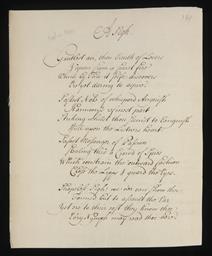 A Sigh
Gentlest air, thou breath of Lovers
Vapour from a secret fire
Which by thee it self discovers
E're yet daring to aspire
Softest Note of whisper'd Anguish
Harmony's refindest part
Striking whilst thou seem'st to languish
Full upon the list'ners heart
Softest Messenger of Passion
Stealing thro' a Crowd of Spies
Which constrain the outward fashion
Close the Lips & guard the Eyes
Shapeless Sigh! we ne'er can show thee
Form'd but to assault the Ear
Yet e're to their cost they know thee
Ev'ry Nymph may read thee here